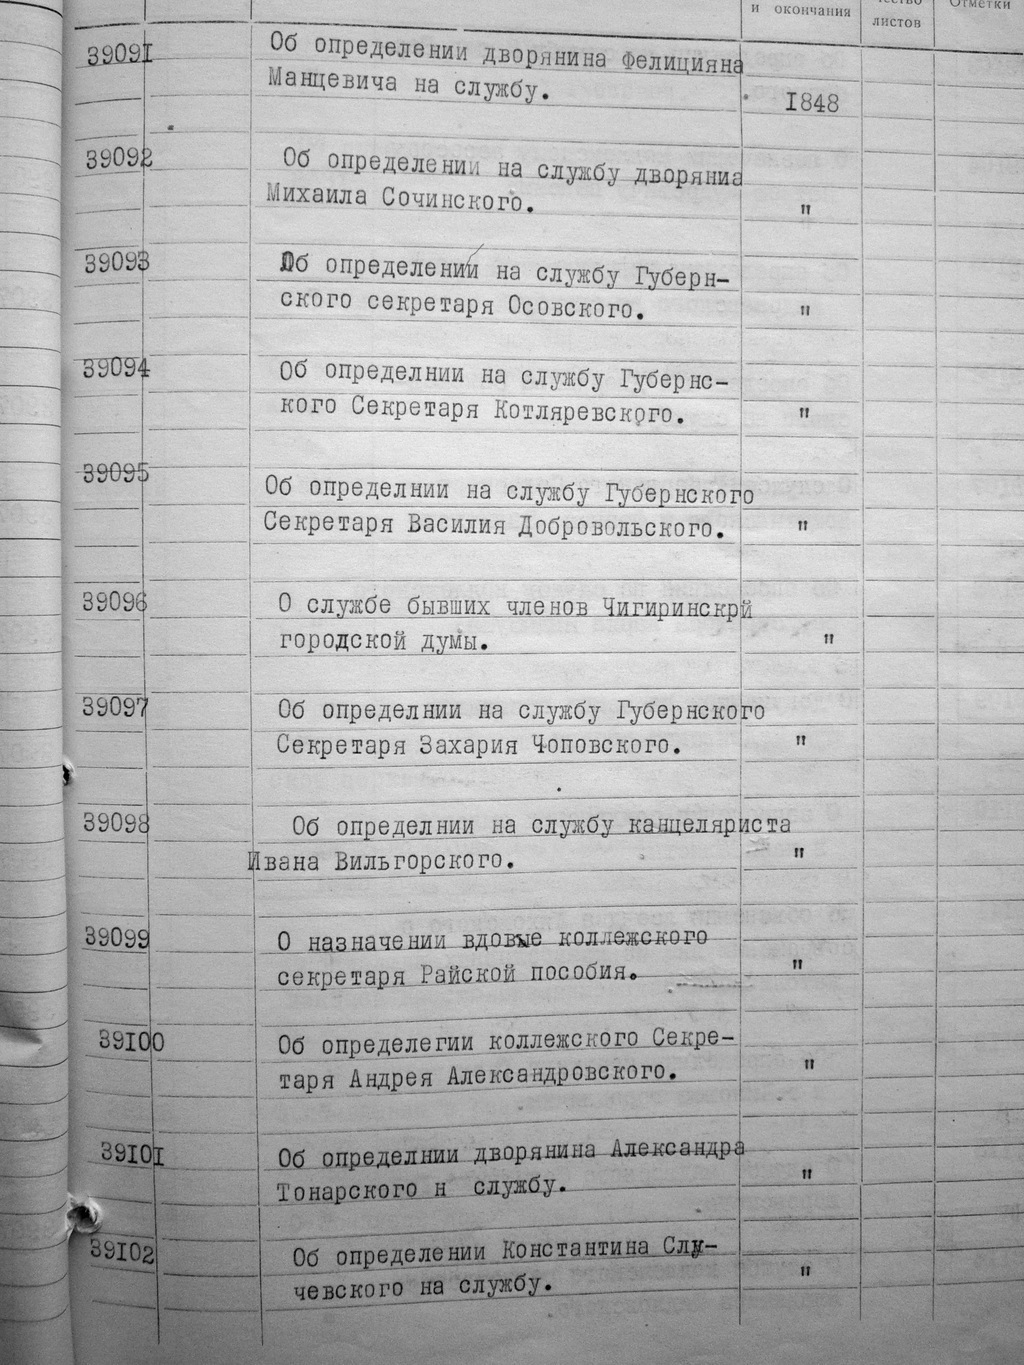 и окончания
листов
Отметки
39091 Об определении дворянина Фелицияна
Манцевича на службу.
1848
39092 Об определении на службу дворяниа
Михаила Сочинского. "
39093 Об определений на службу Губерн-
ского секретаря Осовского. "
39094 Об определнии на службу Губернс-
кого Секретаря Котляревского. "
39095 Об определнии на службу Губернского
Секретаря Василия Добровольского. "
39096 О службе бывших членов Чигиринскрй
городской думы. "
39097 Об определнии на службу Губернского
Секретаря Захария Чоповского. "
39098 Об определнии на службу канцеляриста
Ивана Вильгорского. "
39099 О назначении вдове коллежского
секретаря Райской пособия. "
39100 Об определегии коллежского Секре-
таря Андрея Александровского. "
39101 Об определнии дворянина Александра
Тонарского н службу. "
39102 Об определении Константина Слу-
чевского на службу. "